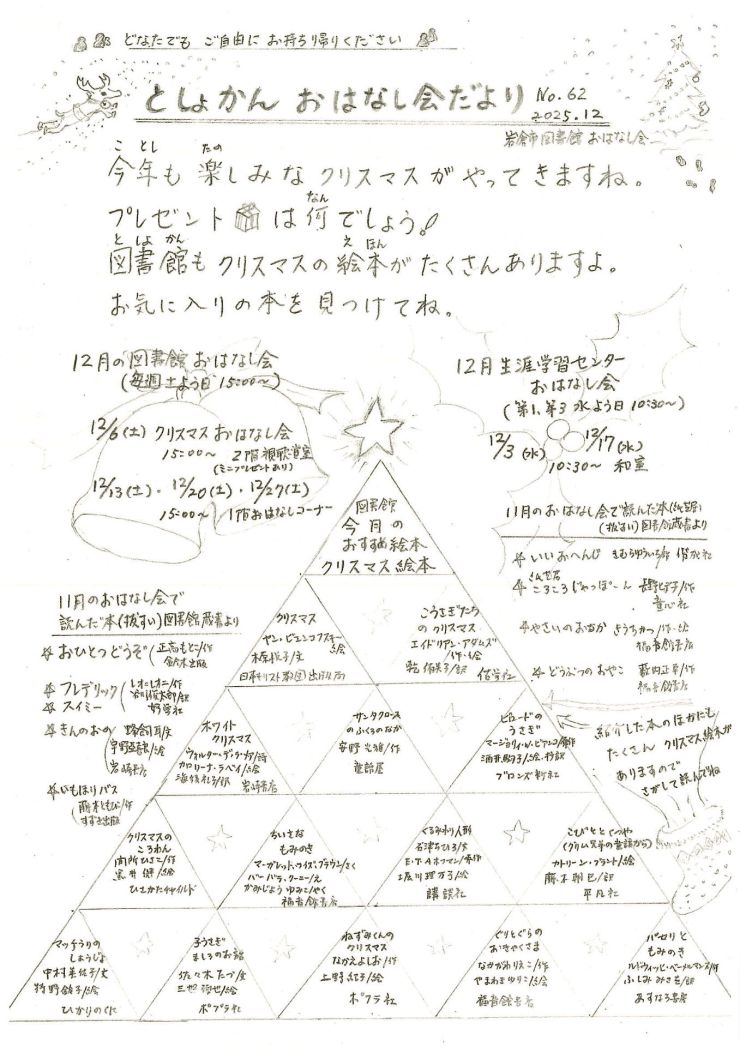 どなたでも ご自由に お持ち帰りください
としょかん おはなし会だより No.62
2025.12
岩倉市図書館 おはなし会
ことし たの
今年も 楽しみな クリスマスが やってきますね。
なん
プレゼントは何でしょう!
としょかん えほん
図書館も クリスマスの絵本が たくさんありますよ。
お気に入りの本を見つけてね。
12月の図書館おはなし会
(毎週土よう日 15:00〜)
12/6(土) クリスマス おはなし会
15:00〜 2階視聴覚室
(ミニプレゼントあり)
12/13(土)・12/20(土)・12/27(土)
15:00〜 1階おはなしコーナー
12月 生涯学習センター
おはなし会
(第1、第3 水よう日 10:30〜)
12/3(水) 12/17(水)
10:30〜 和室
11月のおはなし会で読んだ本
(抜すい)図書館蔵書より
いいおへんじ きむらゆういち/作
ころころじゃっぽーん 長野ヒデ子/作
童心社
やさいのおなか きうちかつ/作・絵
福音館書店
どうぶつのおやこ 薮内正幸/作
福音館書店
11月のおはなし会で
読んだ本(抜すい)図書館蔵書より
おひとつどうぞ 正高もとこ/作
鈴木出版
フレデリック
スイミー
レオ・レオニ/作
谷川俊太郎/訳
好学社
きんのおの
岩崎書店
いもほりバス
藤本ともひこ/作
すずき出版
図書館
今月の
おすすめ絵本
クリスマス絵本
クリスマス
ヤン・ピェンコフスキー
/絵
木原悦子/文
日本キリスト教団出版局
こうさぎたち
の クリスマス
エイドリアン・アダムズ
/作・絵
乾侑美子/訳
佑学社
ホワイト
クリスマス
ウォルター・デ・ラ・メア/詩
カロリーナ・ラベイ/絵
海後礼子/訳
岩崎書店
サンタクロース
のふくろのなか
安野光雅/作
童話屋
ビロードの
うさぎ
マージェリィ・W・ビアンコ/原作
酒井駒子/絵・抄訳
ブロンズ新社
紹介した本のほかにも
たくさん クリスマス絵本が
ありますので
さがして読んでね
クリスマスの
ころわん
間所ひさこ/作
黒井 健/絵
ひさかたチャイルド
ちいさな
もみのき
マーガレット・ワイズ・ブラウン/さく
バーバラ・クーニー/え
かみじょうゆみこ/やく
福音館書店
くるみわり人形
石津ちひろ/文
E・T・Aホフマン/原作
堀川理万子/絵
講談社
こびととくつや
(グリム兄弟の童話から)
カトリーン・ブラント/絵
藤本朝巳/訳
平凡社
マッチうりの
しょうじょ
中村美佐子/文
牧野鈴子/絵
ひかりのくに
子うさぎ
ましろのお話
佐々木たづ/文
三好碩也/絵
ポプラ社
ねずみくんの
クリスマス
なかえよしお/作
上野紀子/絵
ポプラ社
ぐりとぐらの
おきゃくさま
なかがわりえこ/作
やまわきゆりこ/絵
福音館書店
パセリと
もみのき
ルドウィッヒ・ベーメルマンス/作
ふしみみさを/訳
あすなろ書房